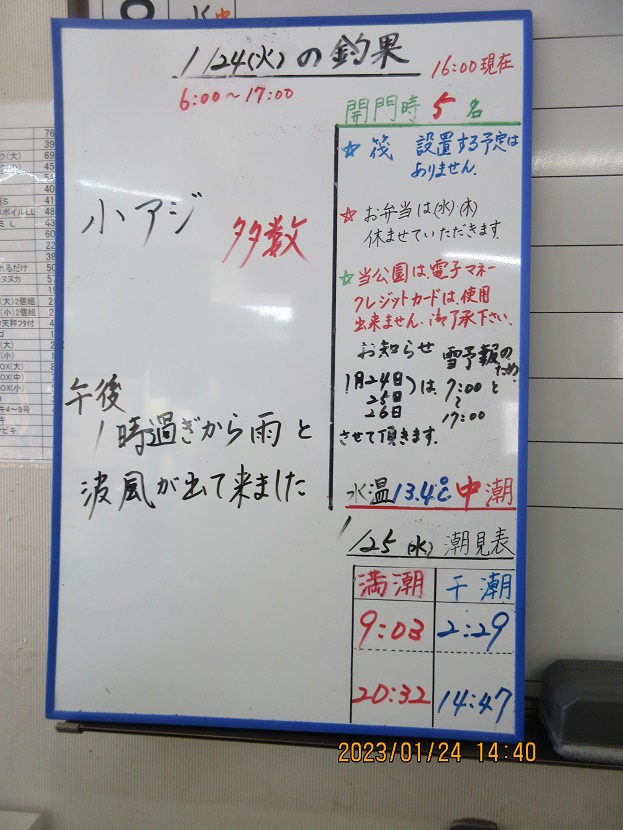 1/24(火)の釣果
16:00現在
6:00～17:00
開門時 5 名
小アジ 多数
午後
1時過ぎから雨と
波風が出て来ました
☆ 筏 設置する予定は
ありません.
☆ お弁当は(水)・(木)
休ませていただきます.
☆ 当公園は、電子マネー
クレジットカードは、使用
出来ません.御了承下さい.
お知らせ 雪予報のため
1月24日
25日
26日
)は 7:00と
～
17:00
させて頂きます.
水温13.4℃ 中潮
1/25(水) 潮見表
満潮 干潮
9:03 2:29
20:32 14:47
2023/01/24 14:40